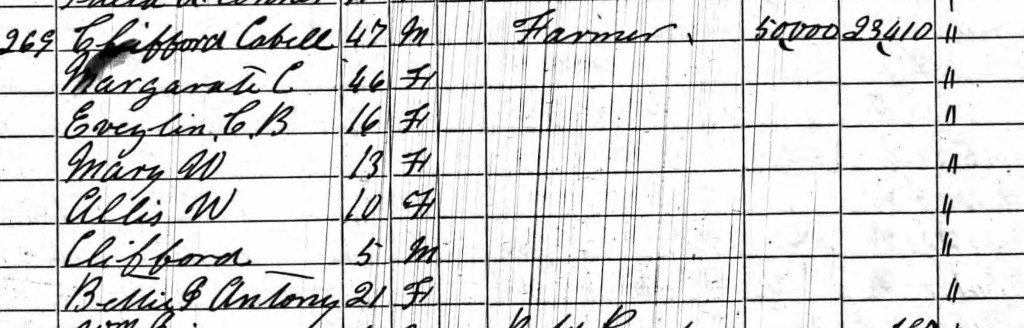 269 Cliifford Cabell 47 M Farmer 50,000 23,410 "
Margarate C 46 F "
Eveylin, C, B 16 F "
Mary W 13 F "
Allis W 10 F "
Clifford 5 M "
Bettie P Antony 21 F "
Wm